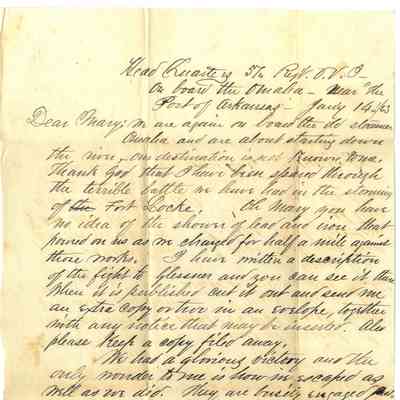 Head Quarters 57th Regt. O.V.I-
On board the Omaha - near the
Post of Arkansas - Jany 14. /63
Dear Mary; We are again on board the old steamer
Omaha and are about starting down
the river, our destination is not known to us.
Thank God that I have been spared through
the terrible battle we have had in the storming
of the Fort Locke. Oh Mary you have
no idea of the shower of lead and iron that
poured on us as we charged for half a mile against
those works. I have written a description
of the fight to Glessner and you can see it there
When it is published cut it out and send me
an extra copy or two in an envelope, together
with any notice that may be inserted. Also
please keep a copy filed away.
We had a glorious victory and the
only wonder to me is how in escaped as
well as we did. They are busily engaged